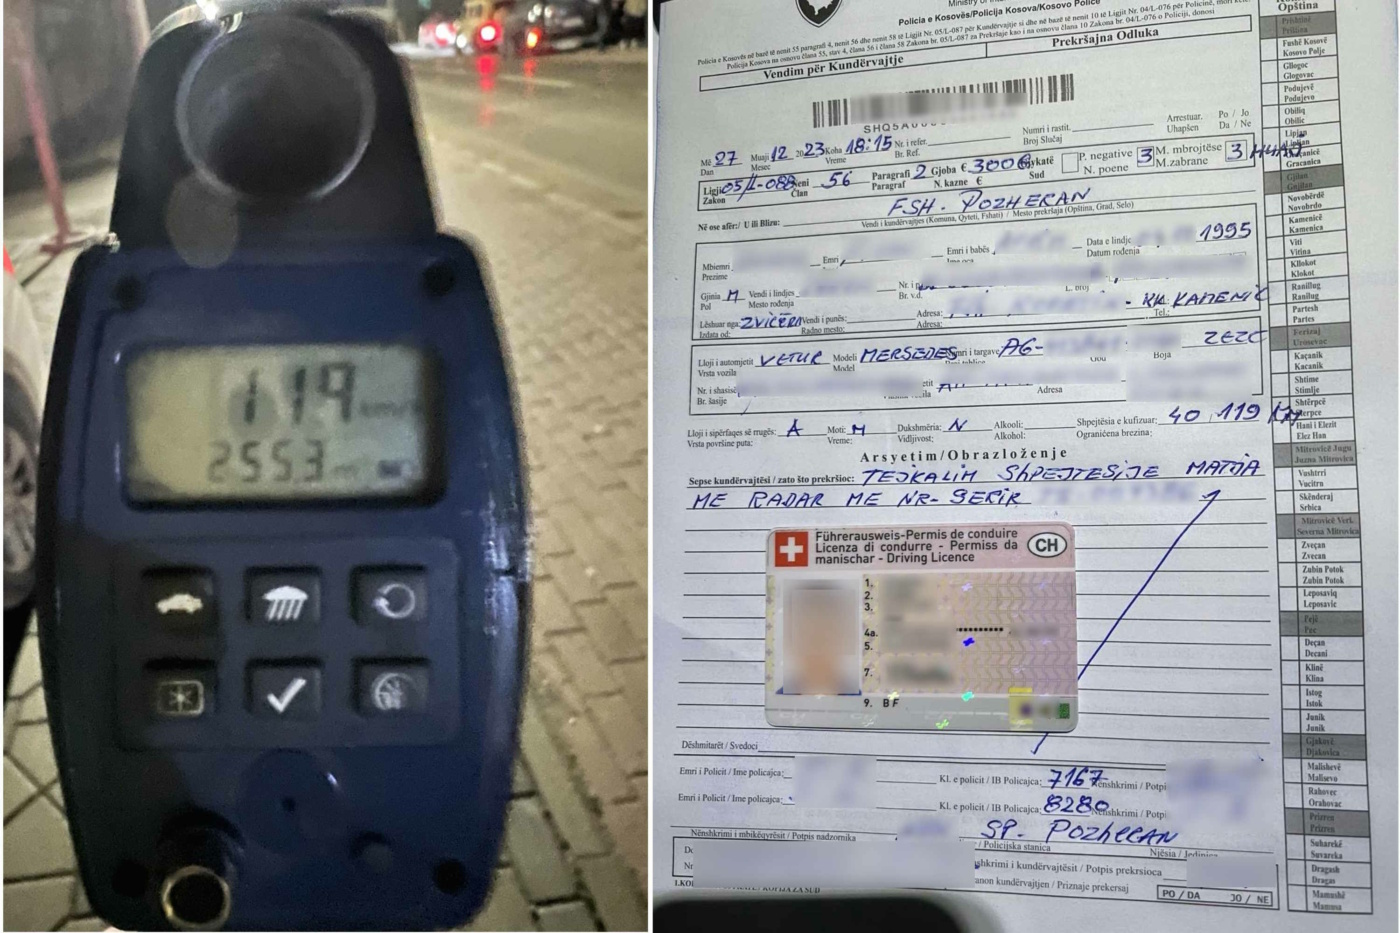 119 km/h
255.3 m
Ministry of
Policia e Kosovës/Policija Kosova/Kosovo Police
Policia e Kosovës në bazë të nenit 55 paragrafi 4, nenit 56 dhe nenit 58 të Ligjit Nr. 05/L-087 për Kundërvajtje si dhe në bazë të nenit 10 të Ligjit Nr. 04/L-076 për Policinë,
Policija Kosova na osnovu člana 55, stav 4, člana 56 i člana 58 Zakona br. 05/L-087 za Prekršaje kao i na osnovu člana 10 Zakona br. 04/L-076 o Policiji, donosi
Vendim për Kundërvajtje
Prekršajna Odluka
SHQ5A
Më 27 Muaji 12 2023 Koha 18:15 Nr. i refer. Numri i rastit. Arrestuar. Po / Jo
Dan Mesec Vreme Br. Ref. Broj Slučaj Uhapšen Da / Ne
Ligji 05/L-088 Neni 56 Paragrafi 2 Gjoba € 300€ Gjykatë P. negative 3 M. mbrojtëse 3
Zakon Član Paragraf N. kazne € Sud N. poene M.zabrane
FSH. POZHERAN
Në ose afër:/ U ili Blizu: Vendi i kundërvajtjes (Komuna, Qyteti, Fshati) / Mesto prekršaja (Opština, Grad, Selo)
Mbiemri Emri Emri i babës Data e lindje 1995
Prezime Datum rođenja
Gjinia M Vendi i lindjes Nr. i L. Broj - RR. KAMENIC
Pol Mesto rođenja Br. v.d. Tel.:
Lëshuar nga: ZVICËRR Vendi i punës: Adresa:
Izdata od: Radno mesto: Adresa:
Lloji i automjetit VETUR Modeli MERSEDES Numri i targave AG- ZEZE
Vrsta vozila Model Boja
Nr. i shasisë Adresa
Br. šasije
Lloji i sipërfaqes së rrugës: A Moti: M Dukshmëria: N Alkooli: Shpejtësia e kufizuar: 40 / 119 KM
Vrsta površine puta: Vreme: Vidljivost: Alkohol: Ograničena brezina:
Arsyetim/Obrazloženje
Sepse kundërvajtësi / zato što prekršioc: TEJKALIM SHPEJTESIJE MATJA
ME RADAR ME NR- SERIK
Führerausweis-Permis de conduire
Licenza di condurre - Permiss da
manischar - Driving Licence
CH
1.
2.
3.
4a.
5.
7.
9. B F
Dëshmitarët / Svedoci
Emri i Policit / Ime policajca: Kl. e policit / IB Policajca: 7167 Nënshkrimi / Potpi
Emri i Policit / Ime policajca: Kl. e policit / IB Policajca: 8280 Nënshkrimi / Potpi
SP. POZHERAN
Nënshkrimi i mbikëqyrësit / Potpis nadzornika / Policijska stanica Njësia / Jedinica
nshkrimi i kundërvajtësit / Potpis prekrsioca
anon kundërvajtjen / Priznaje prekersaj PO / DA JO / NE
Opština
Prishtinë
Priština
Fushë Kosovë
Kosovo Polje
Gllogoc
Glogovac
Podujevë
Podujevo
Obiliq
Obilic
Lipjan
Lipljan
Graçanicë
Gracanica
Gjilan
Gnjilan
Novobërdë
Novobrdo
Kamenicë
Kamenica
Viti
Vitina
Kllokot
Klokot
Ranillug
Ranilug
Partesh
Partes
Ferizaj
Urosevac
Kaçanik
Kacanik
Shtime
Stimlje
Shtërpcë
Sterpce
Hani i Elezit
Elez Han
Mitrovicë Jugu
Juzna Mitrovica
Vushtrri
Vucitrn
Skënderaj
Srbica
Mitrovicë Veri.
Severna Mitrovica
Zveçan
Zvecan
Zubin Potok
Zubin Potok
Leposaviq
Leposavic
Pejë
Pec
Deçan
Decani
Klinë
Klina
Istog
Istok
Junik
Junik
Gjakovë
Djakovica
Malishevë
Malisevo
Rahovec
Orahovac
Prizren
Prizren
Suharekë
Suvareka
Dragash
Dragas
Mamushë
Mamusa